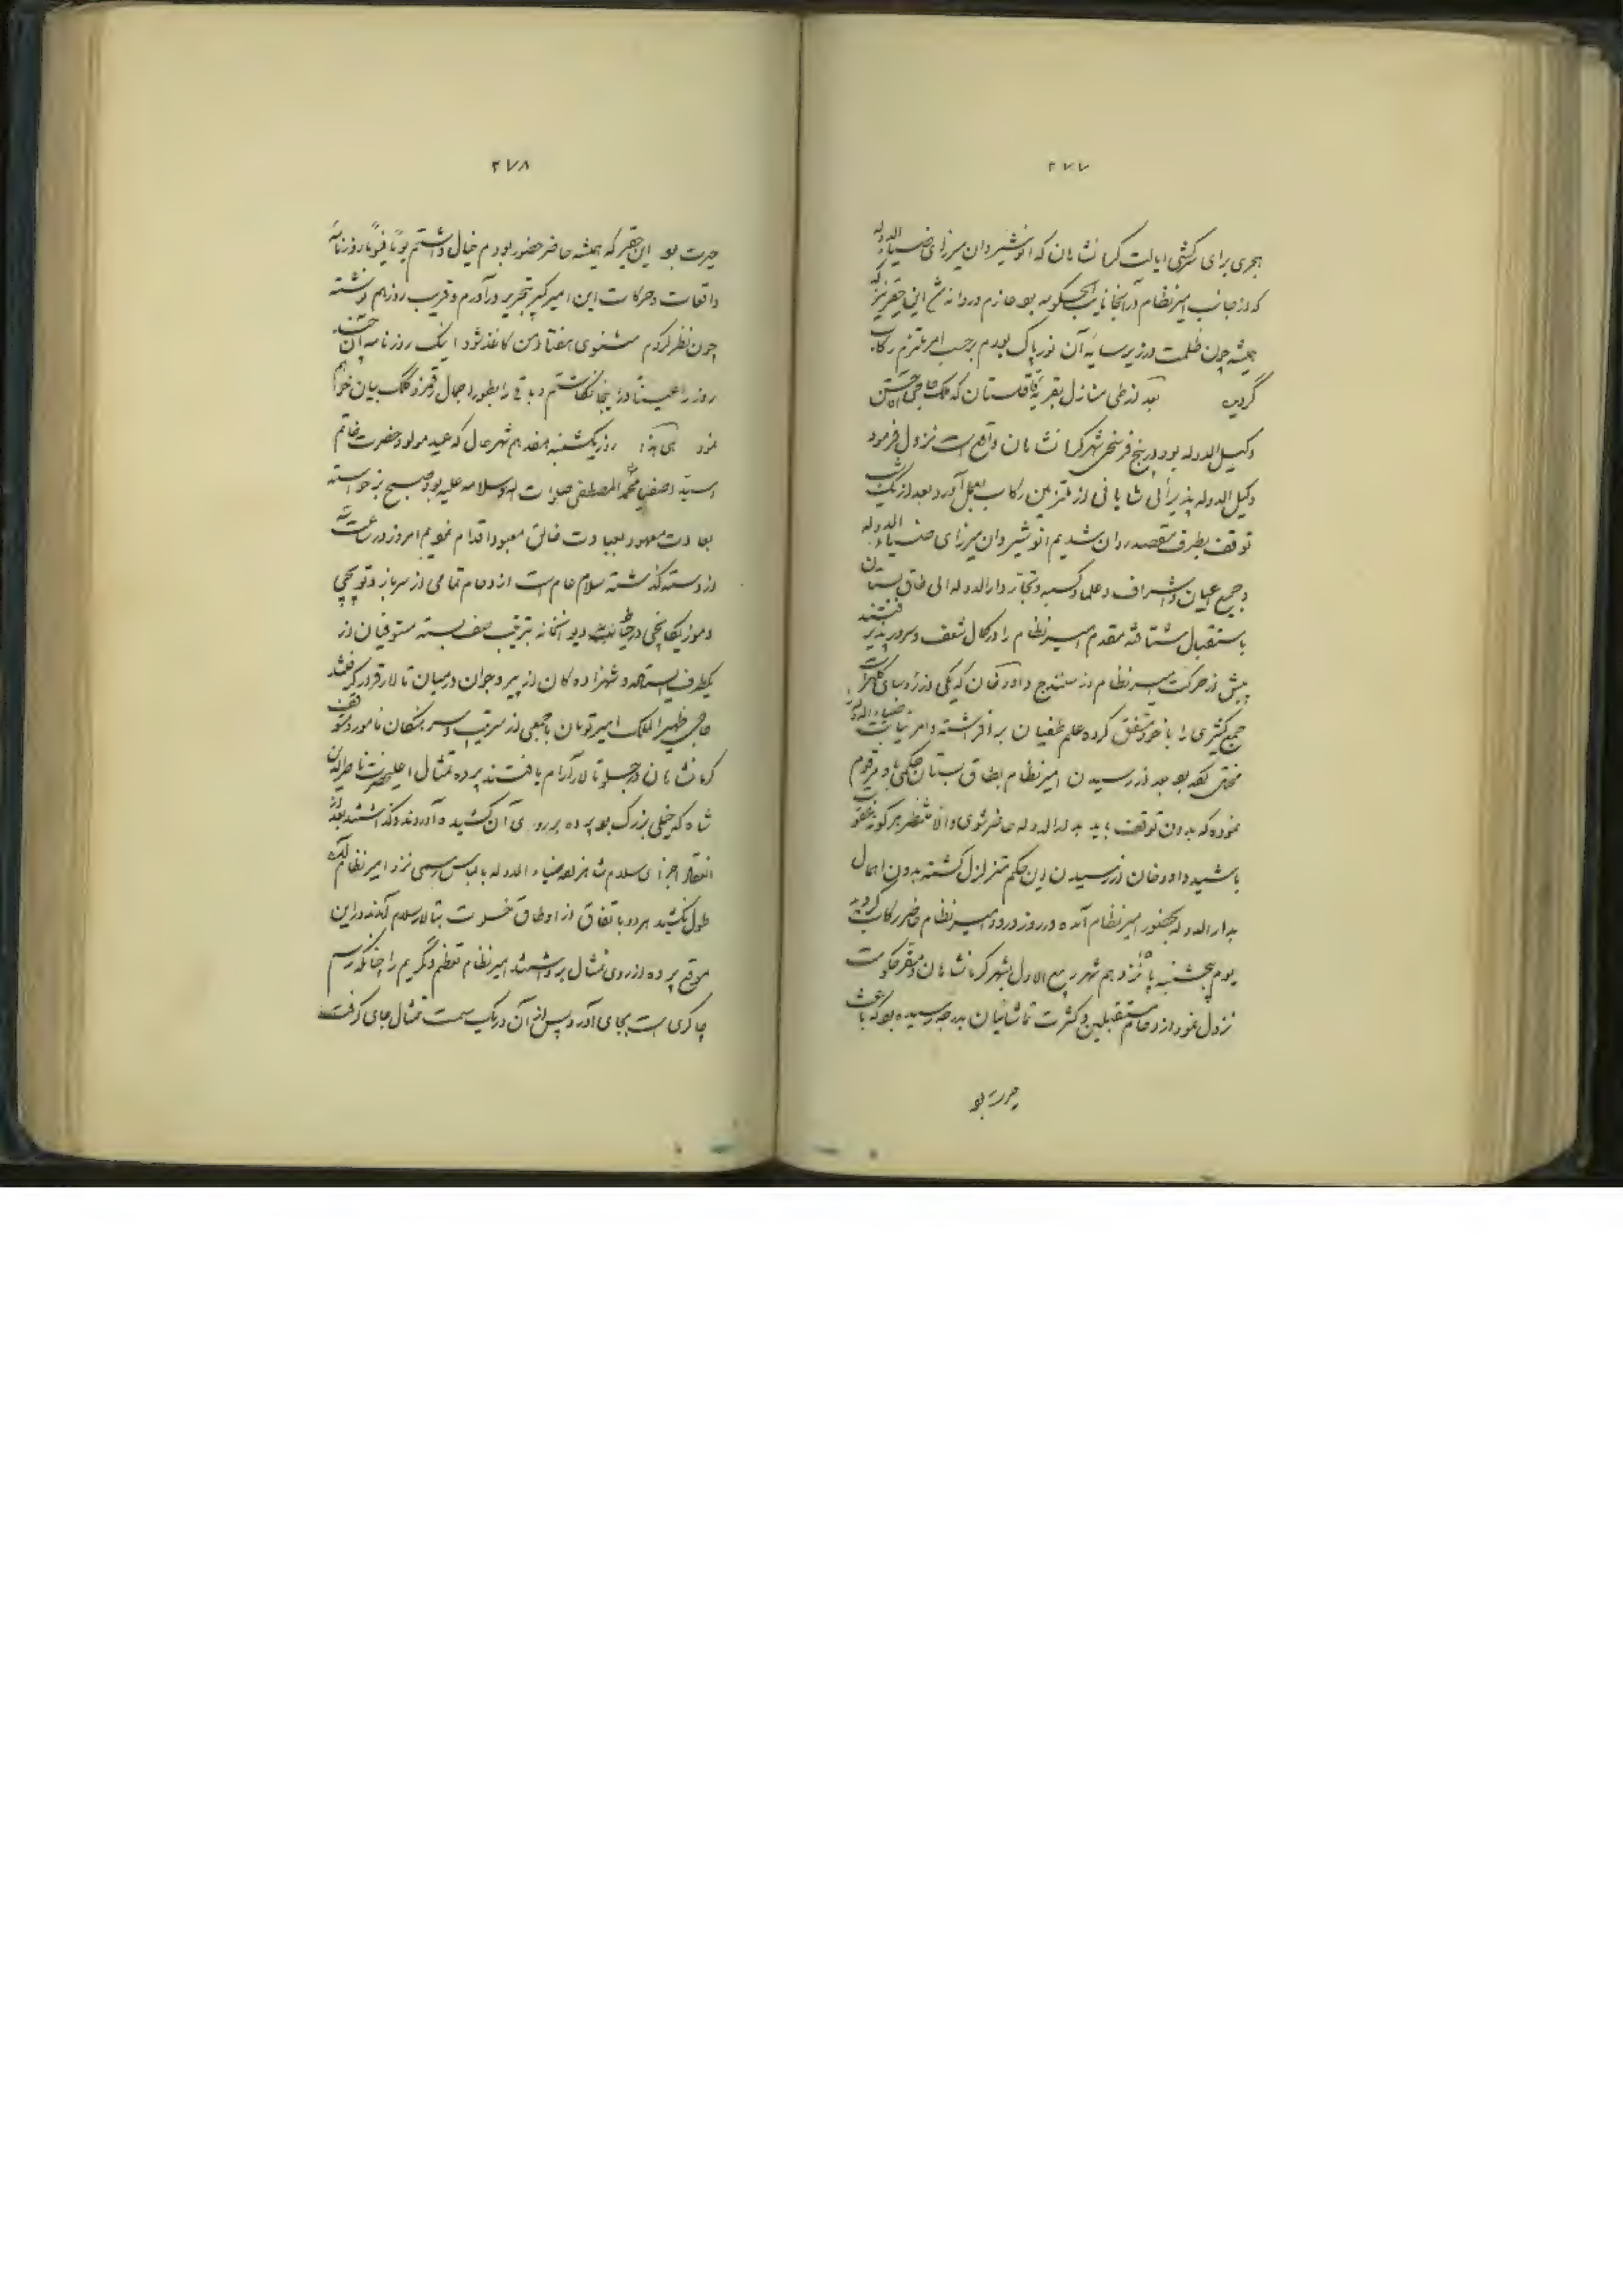 ۲۷۷
هجری برای سرکشی ایالت کرمانشاهان که انوشیروان میرزای ضیاءالدوله
که از جانب امیرنظام در آنجا نایب‌الحکومه بود عازم و روانه شد این حقیر نیز که
همیشه چون ظلمت در زیر سایه آن نور پاک بودم برحسب امر ملتزم رکاب
گردید بعد از طی منازل بقریه که ملک حاجی حسن
وکیل الدوله بود و در پنج فرسخی شهر کرمانشاهان واقع است نزول فرمود
وکیل الدوله پذیرائی شایانی از ملتزمین رکاب بعمل آورد بعد از یکشب
توقف بطرف مقصد روان شدیم انوشیروان میرزای ضیاءالدوله
و جمیع اعیان و اشراف و علما و کسبه و تجار دارالدوله الی طاق بستان
باستقبال شتافته مقدم امیرنظام را در کمال شعف و سرور پذیرفتند
پیش از حرکت امیرنظام از سنندج داود خان که یکی از رؤسای کلهر است
جمع کثیری را با خود متفق کرده علم طغیان برافراشته و امر نیابت ضیاءالدوله
مختل بود بعد از رسیدن امیرنظام بطاق بستان حکمی باو مرقوم
نموده که بدون توقف باید بدارالدوله حاضر شوی والا منتظر هرگونه عقوبت
باشید داود خان از رسیدن این حکم متزلزل گشته بدون اهمال
بدارالدوله بحضور امیرنظام آمده و در روز ورود امیرنظام حاضر رکاب گردید
یوم پنجشنبه پانزدهم شهر ربیع الاول بشهر کرمانشاهان و مقر حکومت
نزول نمود ازدحام مستقبلین و کثرت تماشائیان بدرجه رسیده بود که باعث
حیرت بود
۲۷۸
حیرت بود این حقیر که همیشه حاضر حضور بودم خیال داشتم یوماً فیوماً روزنامه
واقعات و حرکات این امیر کبیر بتحریر درآورم و قریب روز هم نوشته
چون نظر کردم مثنوی هفتاد من کاغذ شود اینک روزنامه آن چند
روز را عیناً در اینجا نگاشتم و باقی را بطور اجمال رقمزد کلک بیان خواهم
نمود هی هذه روز یکشنبه هفدهم شهر حال که عید مولود حضرت خاتم
اصفیا محمد المصطفی صلوات الله و سلامه علیه بود صبح برخواسته
بعادت معهود بعبادت خالق معبود اقدام نمودیم امروز در ساعت
از دسته گذشته سلام عام است ازدحام تمامی از سرباز و توپچی
و موزیکانچی در دیوانخانه بترتیب صف بسته مستوفیان از
یکطرف ایستاده و شهزاده گان از پیر و جوان در میان تالار قرار گرفتند
حاجی ظهیرالملک امیرتومان با جمعی از سرتیپ و سرهنگان نامور
کرمانشاهان در جلو تالار آرام یافتند پرده تمثال اعلیحضرت ناصرالدین
شاه که خیلی بزرگ بود پرده بر روی آن کشیده آوردند و گذاشتند بعد از
انعقاد اجزای سلام شاهزاده ضیاءالدوله بالباس رسمی نزد امیرنظام آمده
طول نکشید هر دو باتفاق از اوطاق خلوت بتالار سلام آمدند در این
موقع پرده از روی تمثال برداشتند امیرنظام تعظیم و تکریم را چنانکه رسم
چاکری است بجای آورد پس از آن در یک سمت تمثال جای گرفت